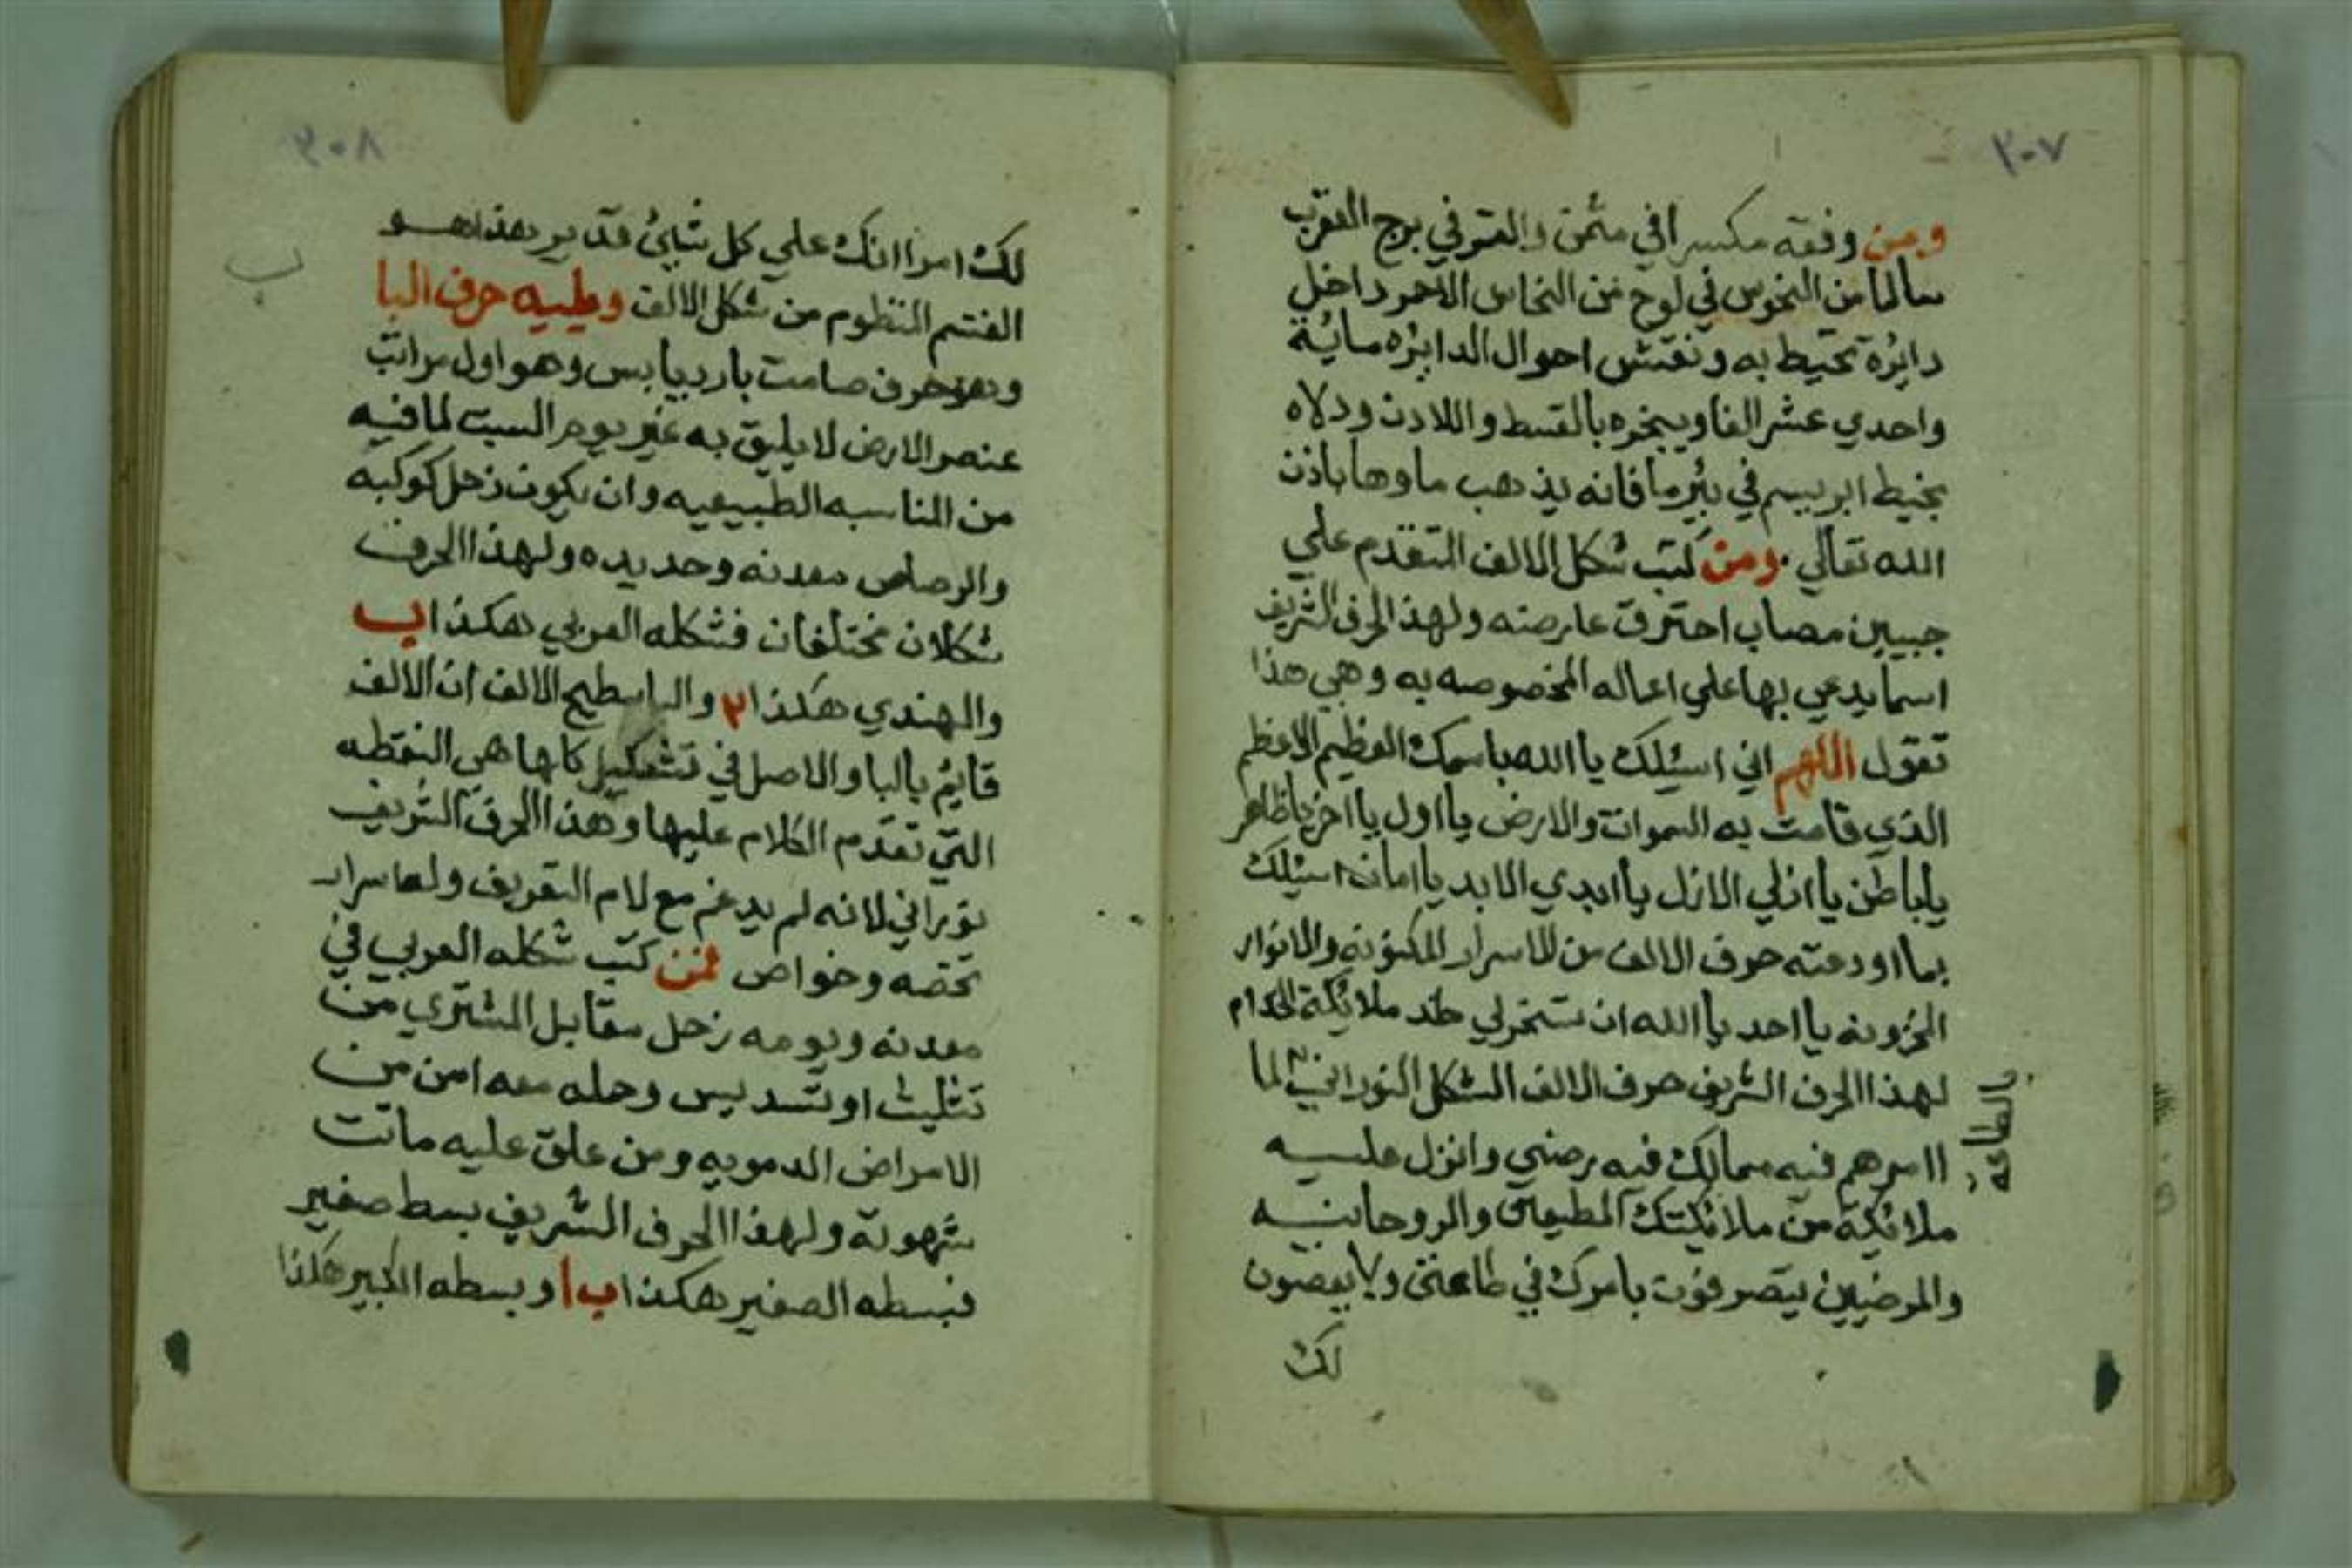 ٣٠٧
ومن وفقه مكسرا في مثمن والقمر في برج العقرب
سالما من النحوس في لوح من النحاس الاحمر داخل
دايرة تحيط به ونقش احوال الدايره مايئة
واحدي عشر الفا ويبخره بالقسط واللادن ودلاه
بخيط ابريسم في بئر ما فانه يذهب ماوها باذن
الله تعالي ومن كتب شكل الالف المتقدم علي
جبين مصاب احترق عارضه ولهذ الحرف الشريف
اسما يدعي بها علي اعماله المخصوصه به وهي هذا
تقول اللهم اني اسئلك يا الله باسمك العظيم الاعظم
الذي قامت به السموات والارض يا اول يا اخر يا ظاهر
يا باطن يا ازلي الازل يا ابدي الابد يا امان اسئلك
بما اودعته حرف الالف من الاسرار المكنونه والانوار
المخزونه يا احد يا الله ان تسخر لي ملائكة الخدام
لهذا الحرف الشريف حرف الالف الشكل النوراني لما
اامرهم فيه مما لك فيه رضي وانزل عليه
بالطاعة
ملائكة من ملائكتك المطيعين والروحانيه
والمرضيين يتصرفون بامرك في طاعتي ولا يعصون
لك
٣٠٨
لك امرا انك علي كل شيئ قدير هذا هو
القسم المنظوم من شكل الالف ويليه حرف البا
وهو حرف صامت بارد يابس وهو اول مراتب
ب
عنصر الارض لا يليق به غير يوم السبت لما فيه
من المناسبه الطبيعيه وان يكون زحل كوكبه
والرصاص معدنه وحديده ولهذا الحرف
شكلان مختلفان فشكله العربي هكذا ب
والهندي هكذا ٢ والبا سطيح الالف ان الالف
قايم بالبا والاصل في تشكيل كلها هي النقطه
التي تقدم الكلام عليها وهذا الحرف الشريف
نوراني لانه لم يدغم مع لام التعريف ولها سرار
تخصه وخواص فمن كتب شكله العربي في
معدنه ويومه زحل مقابل المشتري من
تثليث او تسديس وحمله معه امن من
الامراض الدمويه ومن علق عليه ماتت
شهوته ولهذا الحرف الشريف بسط صغير
فبسطه الصغير هكذا ب ا وبسطه الكبير هكذا